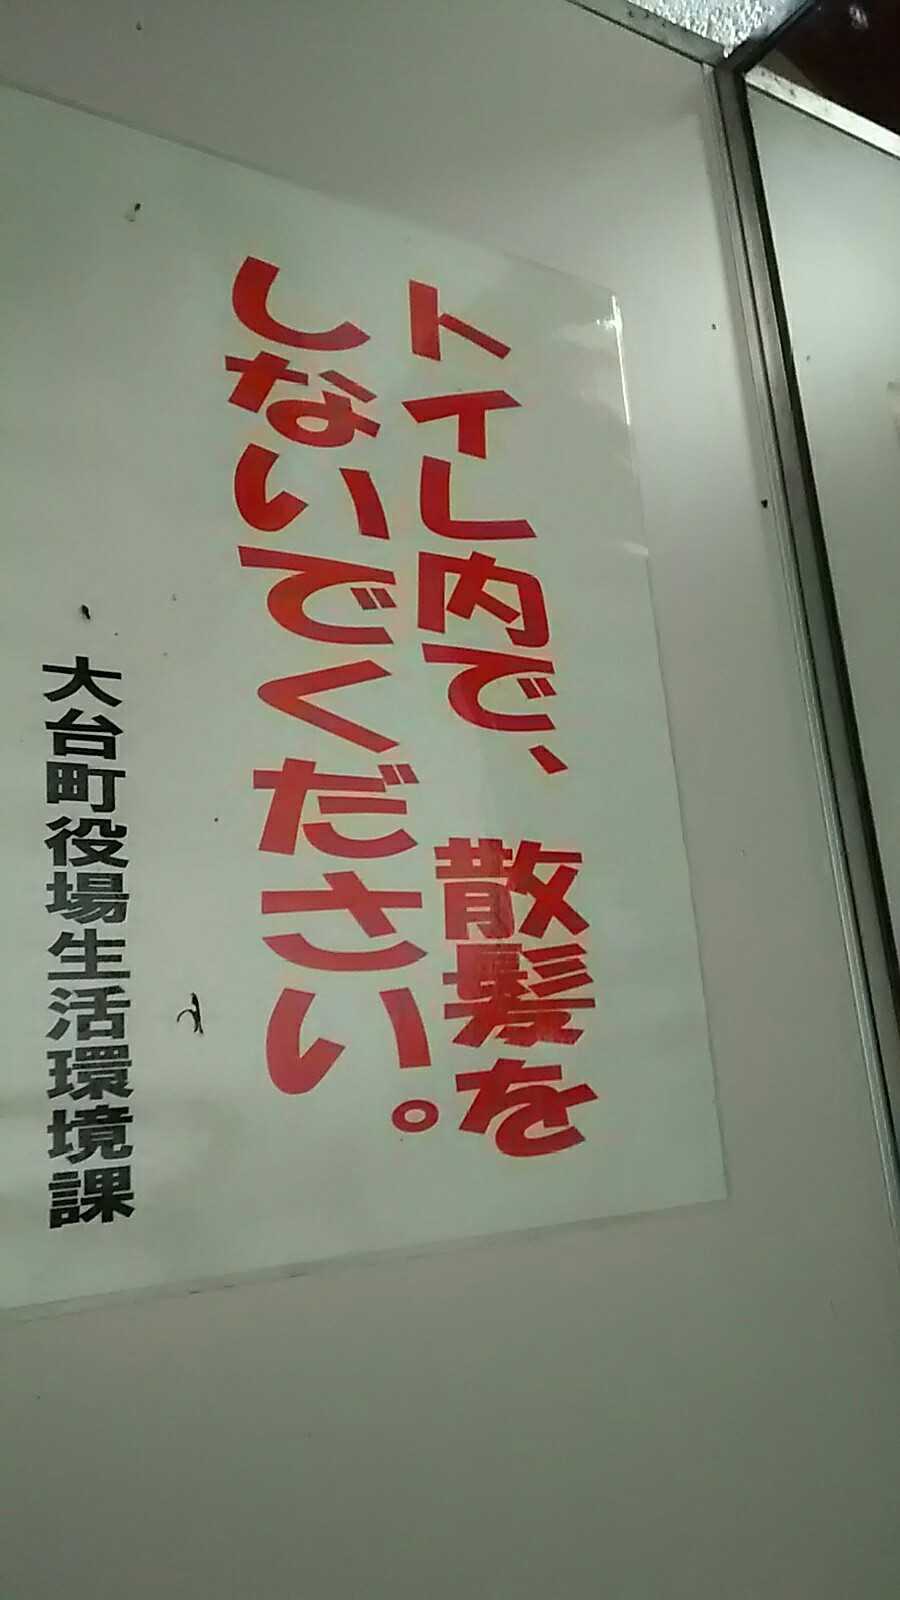 トイレ内で、散髪を
しないでください。
大台町役場生活環境課